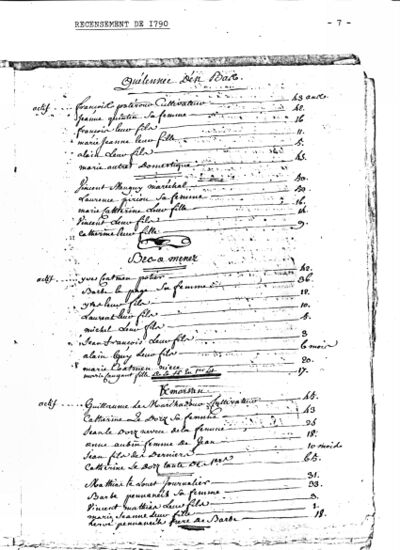 RECENSEMENT DE 1790
- 7 -
Quélennec D'en Bas.
actif françois poliven Cultivateur 43 ans
jeanne quintin Sa femme 42.
françois leur fils 16
marie jeanne leur fille 11.
alain Leur fils 5.
marie autret Domestique 45.
Vincent Mauguy maréchal 50.
Laurence piriou Sa femme 50
marie Catherine Leur fille 16.
Vincent Leur fils 14.
Catherine leur fille 9.
Bec a menez
actif yves Coatmen potier 42.
Barbe le page Sa femme 36.
yves leur fils 18.
Laurent leur fils 10.
michel Leur fils 5.
Jean François Leur fils 3
alain Guy Leur fils 6 mois
marie Coatmen niece 20.
marie fille 17.
Kmorvan
actif Guillaume Le Cultivateur 45.
Catherine Le Dorz Sa femme 43
Jean le Dorz neveu de la femme 25
anne aubin femme de Jean 18.
Jean fils des Derniers 10 mois
Catherine le Dorz tante De 65.
Mathias le Journalier 31.
Barbe penvaneih Sa femme 33.
Vincent mathias Leur fils 3.
marie Jeanne Leur fille 1.
hervé penvaneih frere de Barbe 18.